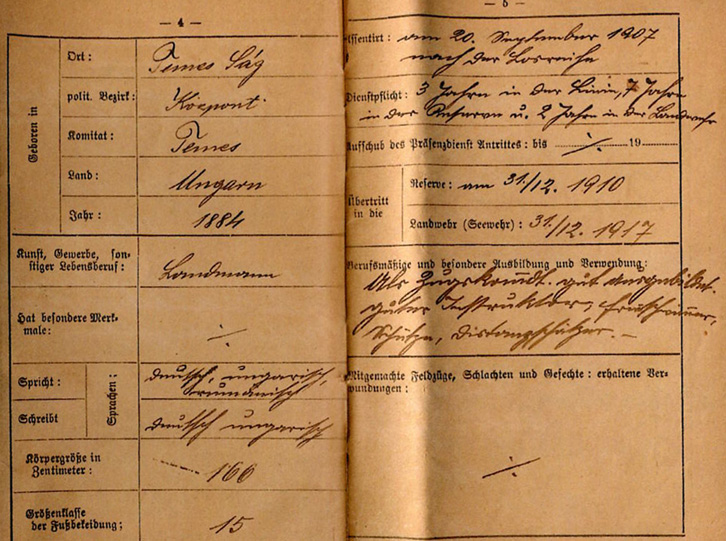 — 4 —
Geboren in
Ort: Temes Ság
polit. Bezirk: Központ
Komitat: Temes
Land: Ungarn
Jahr: 1884
Kunst, Gewerbe, son-
stiger Lebensberuf: Landmann
Hat besondere Merk-
male: ·/·
Sprachen:
Spricht: deutsch, ungarisch,
rumänisch
Schreibt deutsch ungarisch
Körpergröße in
Zentimeter: 166
Größenklasse
der Fußbekleidung: 15
Assentirt: am 20. September 1907
nach der Losreihe
Dienstpflicht: 3 Jahre in der Linie, 7 Jahre
in der Reserve u. 2 Jahre in der Landwehr
Aufschub des Präsenzdienst Antrittes: bis ·/· 19
Übertritt
in die
Reserve: am 31/12. 1910
Landwehr (Seewehr): 31/12. 1917
Berufsmäßige und besondere Ausbildung und Verwendung:
Als Zugskommdt. gut ausgebildet.
guter Instruktor,
Schütze, Distanzschätzer. —
Mitgemachte Feldzüge, Schlachten und Gefechte: erhaltene Ver-
wundungen:
·/·